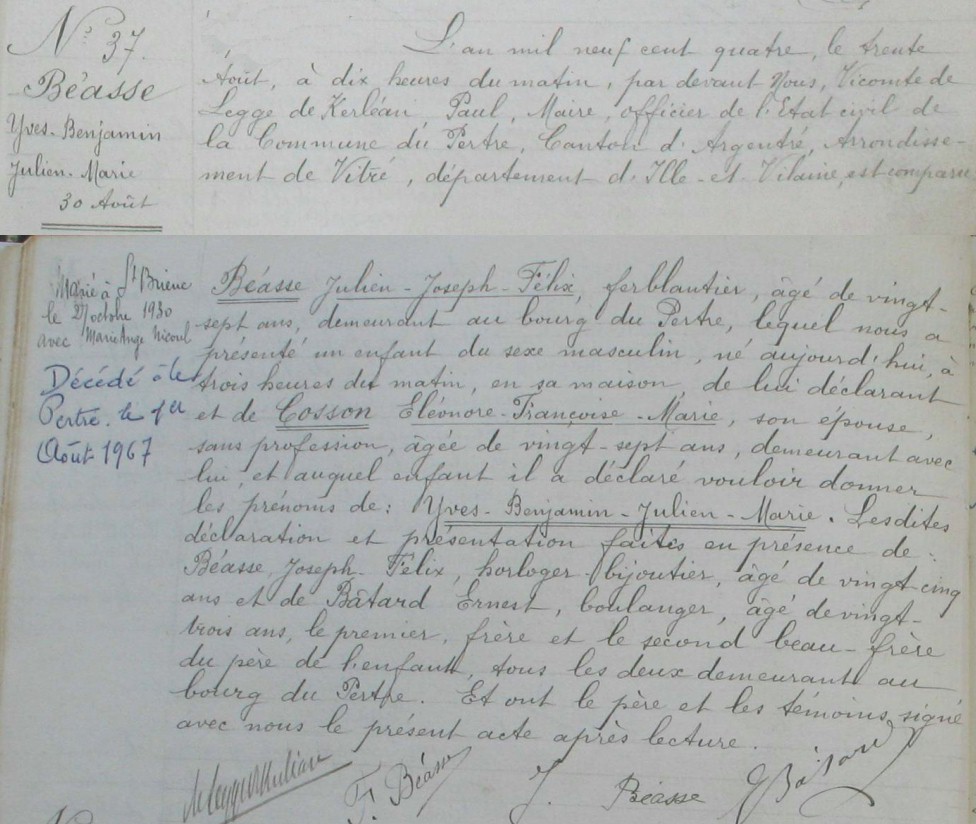 N° 37.
Béasse
Yves-Benjamin
Julien-Marie
30 Août
L'an mil neuf cent quatre, le trente
Août, à dix heures du matin, par devant Nous, Vicomte de
Legge de Kerléan, Paul, Maire, officier de l'Etat civil de
la Commune du Pertre, Canton d'Argentré, Arrondisse-
ment de Vitré, département d'Ille-et-Vilaine, est comparu
Marié à St Brieuc
le octobre 1930
avec Marie Ange Nicoul
Décédé à le
Pertre. le 1er
Août 1967
Béasse Julien-Joseph-Félix, ferblantier, âgé de vingt-
sept ans, demeurant au bourg du Pertre, lequel nous a
présenté un enfant du sexe masculin, né aujourd'hui, à
trois heures du matin, en sa maison, de lui déclarant
et de Cosson Eléonore-Françoise-Marie, son épouse,
sans profession, âgée de vingt-sept ans, demeurant avec
lui, et auquel enfant il a déclaré vouloir donner
les prénoms de: Yves-Benjamin-Julien-Marie. Lesdites
déclaration et présentation faites en présence de:
Béasse, Joseph-Félix, horloger-bijoutier, âgé de vingt cinq
ans et de Bâtard Ernest, boulanger, âgé de vingt-
trois ans, le premier, frère et le second beau-frère
du père de l'enfant, tous les deux demeurant au
bourg du Pertre. Et ont le père et les témoins signé
avec nous le présent acte après lecture.
de Legge de Kerléan F. Béasse J. Béasse E Bâtard